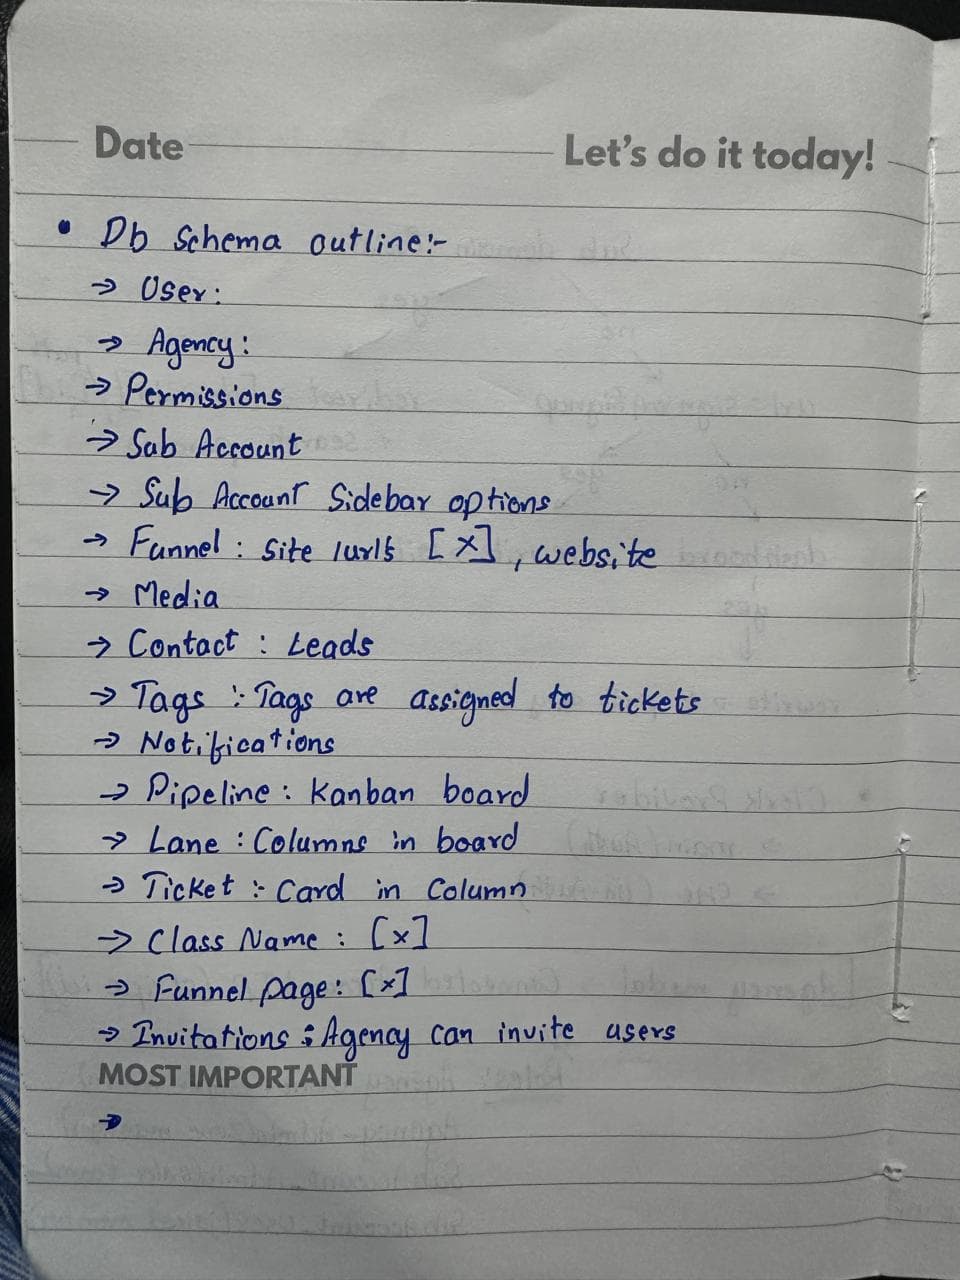 Date Let's do it today!
• Db Schema outline:-
→ User:
→ Agency:
→ Permissions
→ Sub Account
→ Sub Account Sidebar options
→ Funnel : Site [x], website
→ Media
→ Contact : Leads
→ Tags :- Tags are assigned to tickets
→ Notifications
→ Pipeline : Kanban board
→ Lane : Columns in board
→ Ticket :- Card in Column
→ Class Name : [x]
→ Funnel page : [x]
→ Invitations : Agency can invite users
MOST IMPORTANT
→